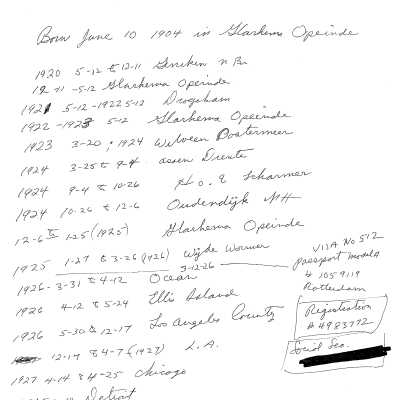 Born June 10 1904 in Slarkema Opeinde
1920 5-12 to 12-11 Smiken n Br
12-11 -5-12 Slarkema Opeinde
1921 5-12-1922 5-12 Drogeham
1922 - 1923 5-12 Slarkema Opeinde
1923 3-20 1924 Witveen Oostermeer
1924 3-25 to 9-4 assen Drente
1924 9-4 to 10-26 H. o. g Scharmer
1924 10-26 to 12-6 Oudendijk NH
12-6 to 1-25 (1925) Slarkema Opeinde
1925 1-27 to 3-26 (1926) Wijde Wormer
3-12-26
1926 - 3-31 to 4-12 Ocean
1926 4-12 to 5-24 Ellis Island
1926 5-30 to 12-17 Los Angeles County
12-19 to 4-7 (1927) L.A.
1927 4-14 to 4-25 Chicago
Detroit
VISA No 512
passport model a
# 1059119
Rotterdam
Registration
# 4983772
Social Sec.